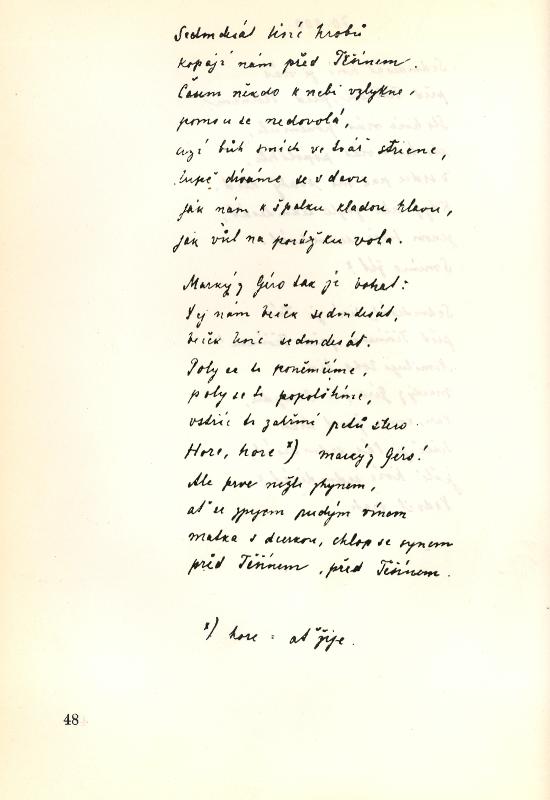 Sedmdesát tisíc hrobů
kopají nám před Těšínem.
Časem někdo k nebi vzlykne,
pomocu se nedovolá,
cyzí bůh smích ve tvář střicne,
tupě díváme se v davu
jak nám k špalku kladou hlavu,
jak vůl na porážku vola.
Markýz Géro tak je bohat:
Dej nám beček sedmdesát,
beček tisíc sedmdesát.
Poly se ti poněmčíme,
poly se ti popolštíme,
vstříc ti zahřmí petů stero.
Hore, hore x) markýz Géro!
Ale prve nežli zhynem,
ať se zpijem rudým vínem
matka s dcerkou, chlop se synem
před Těšínem, před Těšínem.
x) hore = ať žije.
48